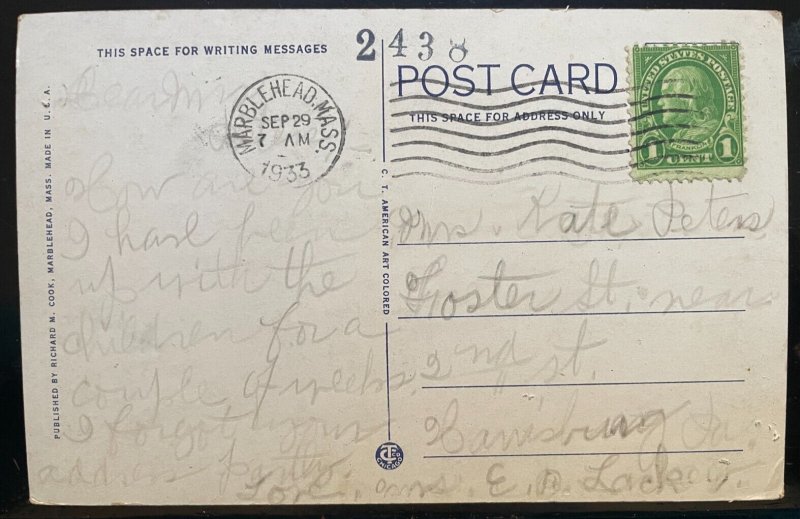 THIS SPACE FOR WRITING MESSAGES
2438
POST CARD
THIS SPACE FOR ADDRESS ONLY
MARBLEHEAD, MASS.
SEP 29
7 AM
1933
UNITED STATES POSTAGE
FRANKLIN
1 CENT 1
PUBLISHED BY RICHARD M. COOK, MARBLEHEAD, MASS. MADE IN U.S.A.
How are you
I have been
up with the
children for a
couple of weeks.
I forgot your
address
C. T. AMERICAN ART COLORED
Mrs. Kate Peters
Foster St. near
2nd St.
Harrisburg Pa.
E. A. Lackey.
CHICAGO